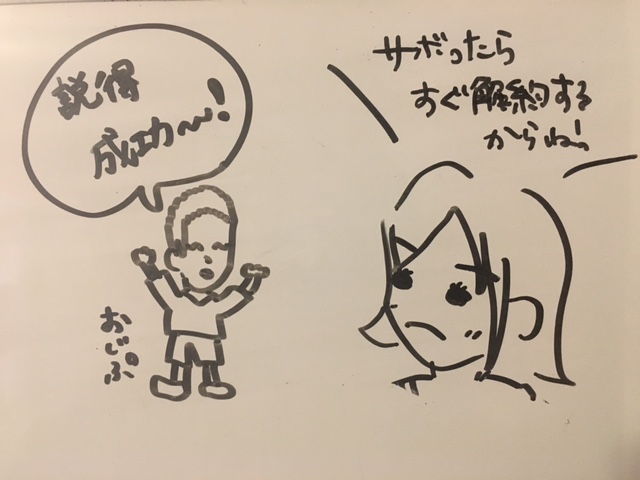 説得
成功〜!
サボったら
すぐ解約する
からね!
おじぷ。